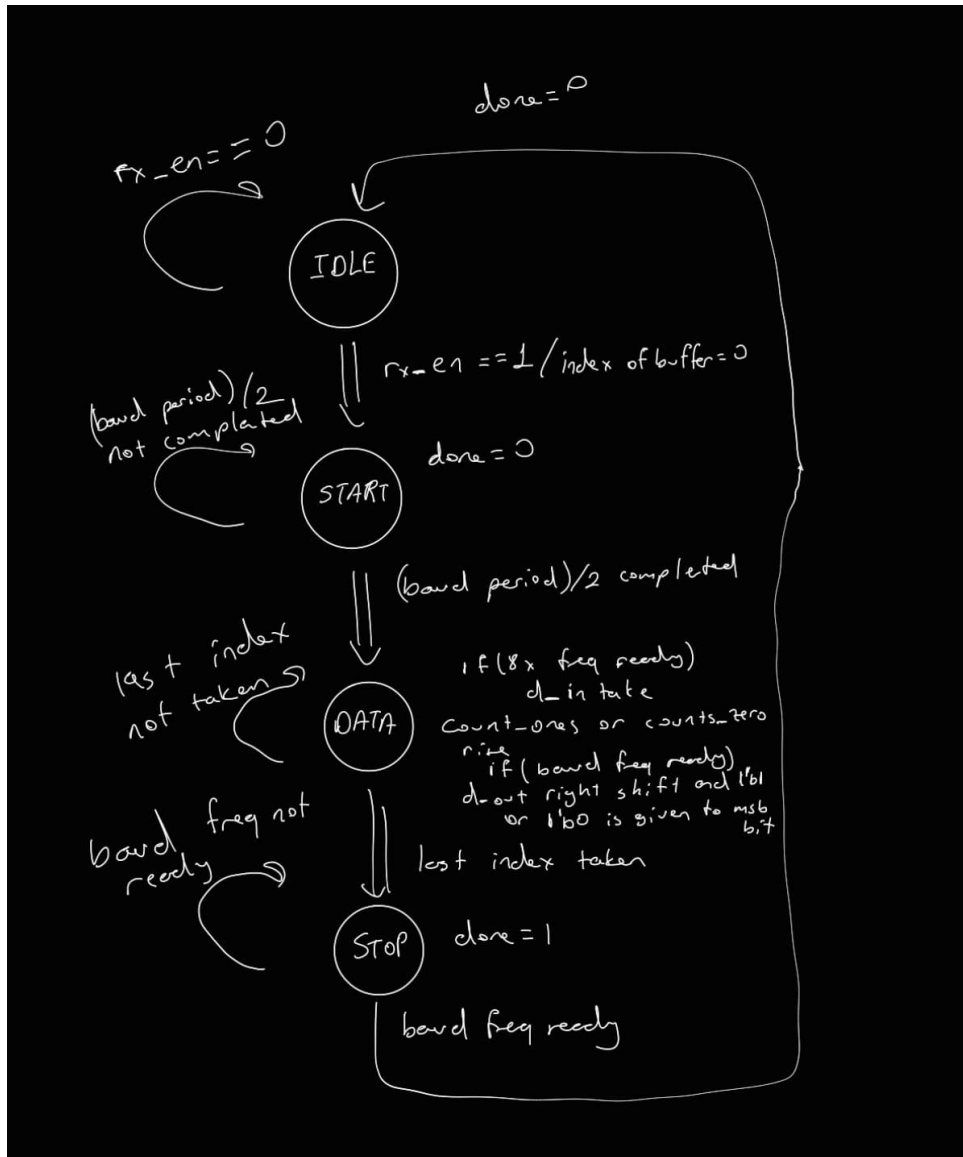 done = 0
rx_en == 0
IDLE
rx_en == 1 / index of buffer = 0
(baud period)/2
not complated
done = 0
START
(baud period)/2 completed
last index
not taken
if (8x freq ready)
d_in take
DATA
count_ones or counts_zero
rise
if (baud freq ready)
d_out right shift and 1'b1
or 1'b0 is given to msb
bit
baud freq not
ready
last index taken
STOP
done = 1
baud freq ready